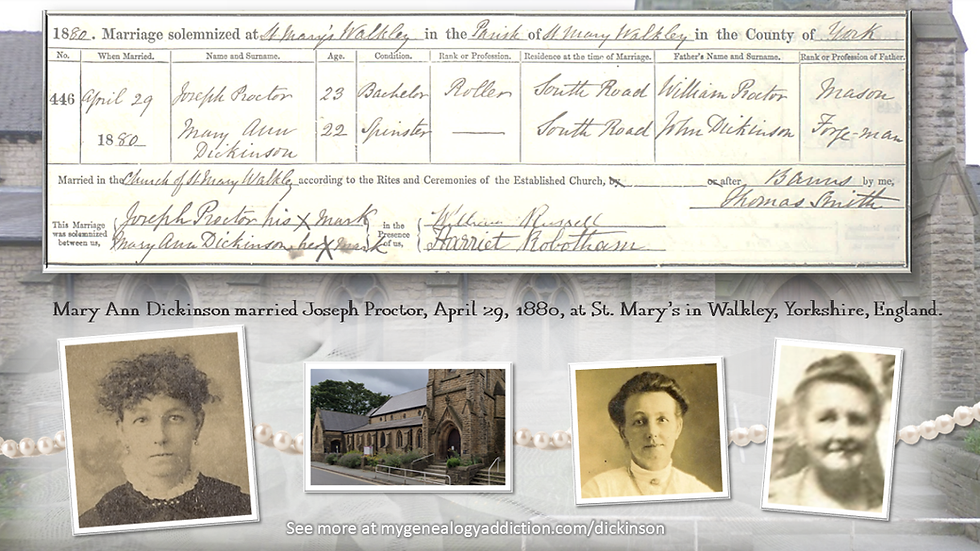 1880. Marriage solemnized at St Mary's Walkley in the Parish of St Mary Walkley in the County of York
No. When Married. Name and Surname. Age. Condition. Rank or Profession. Residence at the time of Marriage. Father's Name and Surname. Rank or Profession of Father.
446 April 29 Joseph Proctor 23 Bachelor Roller South Road William Proctor Mason
1880 Mary Ann Dickinson 22 Spinster South Road John Dickinson Forge-man
Married in the Church of St Mary Walkley according to the Rites and Ceremonies of the Established Church, by or after Banns by me,
Thomas Smith
This Marriage was solemnized between us, Joseph Proctor his X mark in the Presence of us, William Russell
Mary Ann Dickinson her X mark Harriet Robotham
Mary Ann Dickinson married Joseph Proctor, April 29, 1880, at St. Mary's in Walkley, Yorkshire, England.
See more at mygenealogyaddiction.com/dickinson